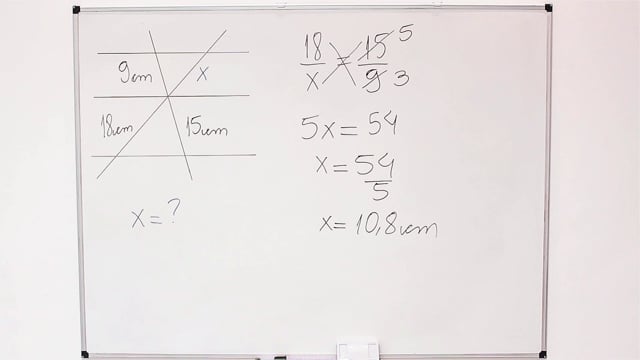 9cm x
18cm 15cm
x = ?
18/x = 15/9 5 3
5x = 54
x = 54/5
x = 10,8cm